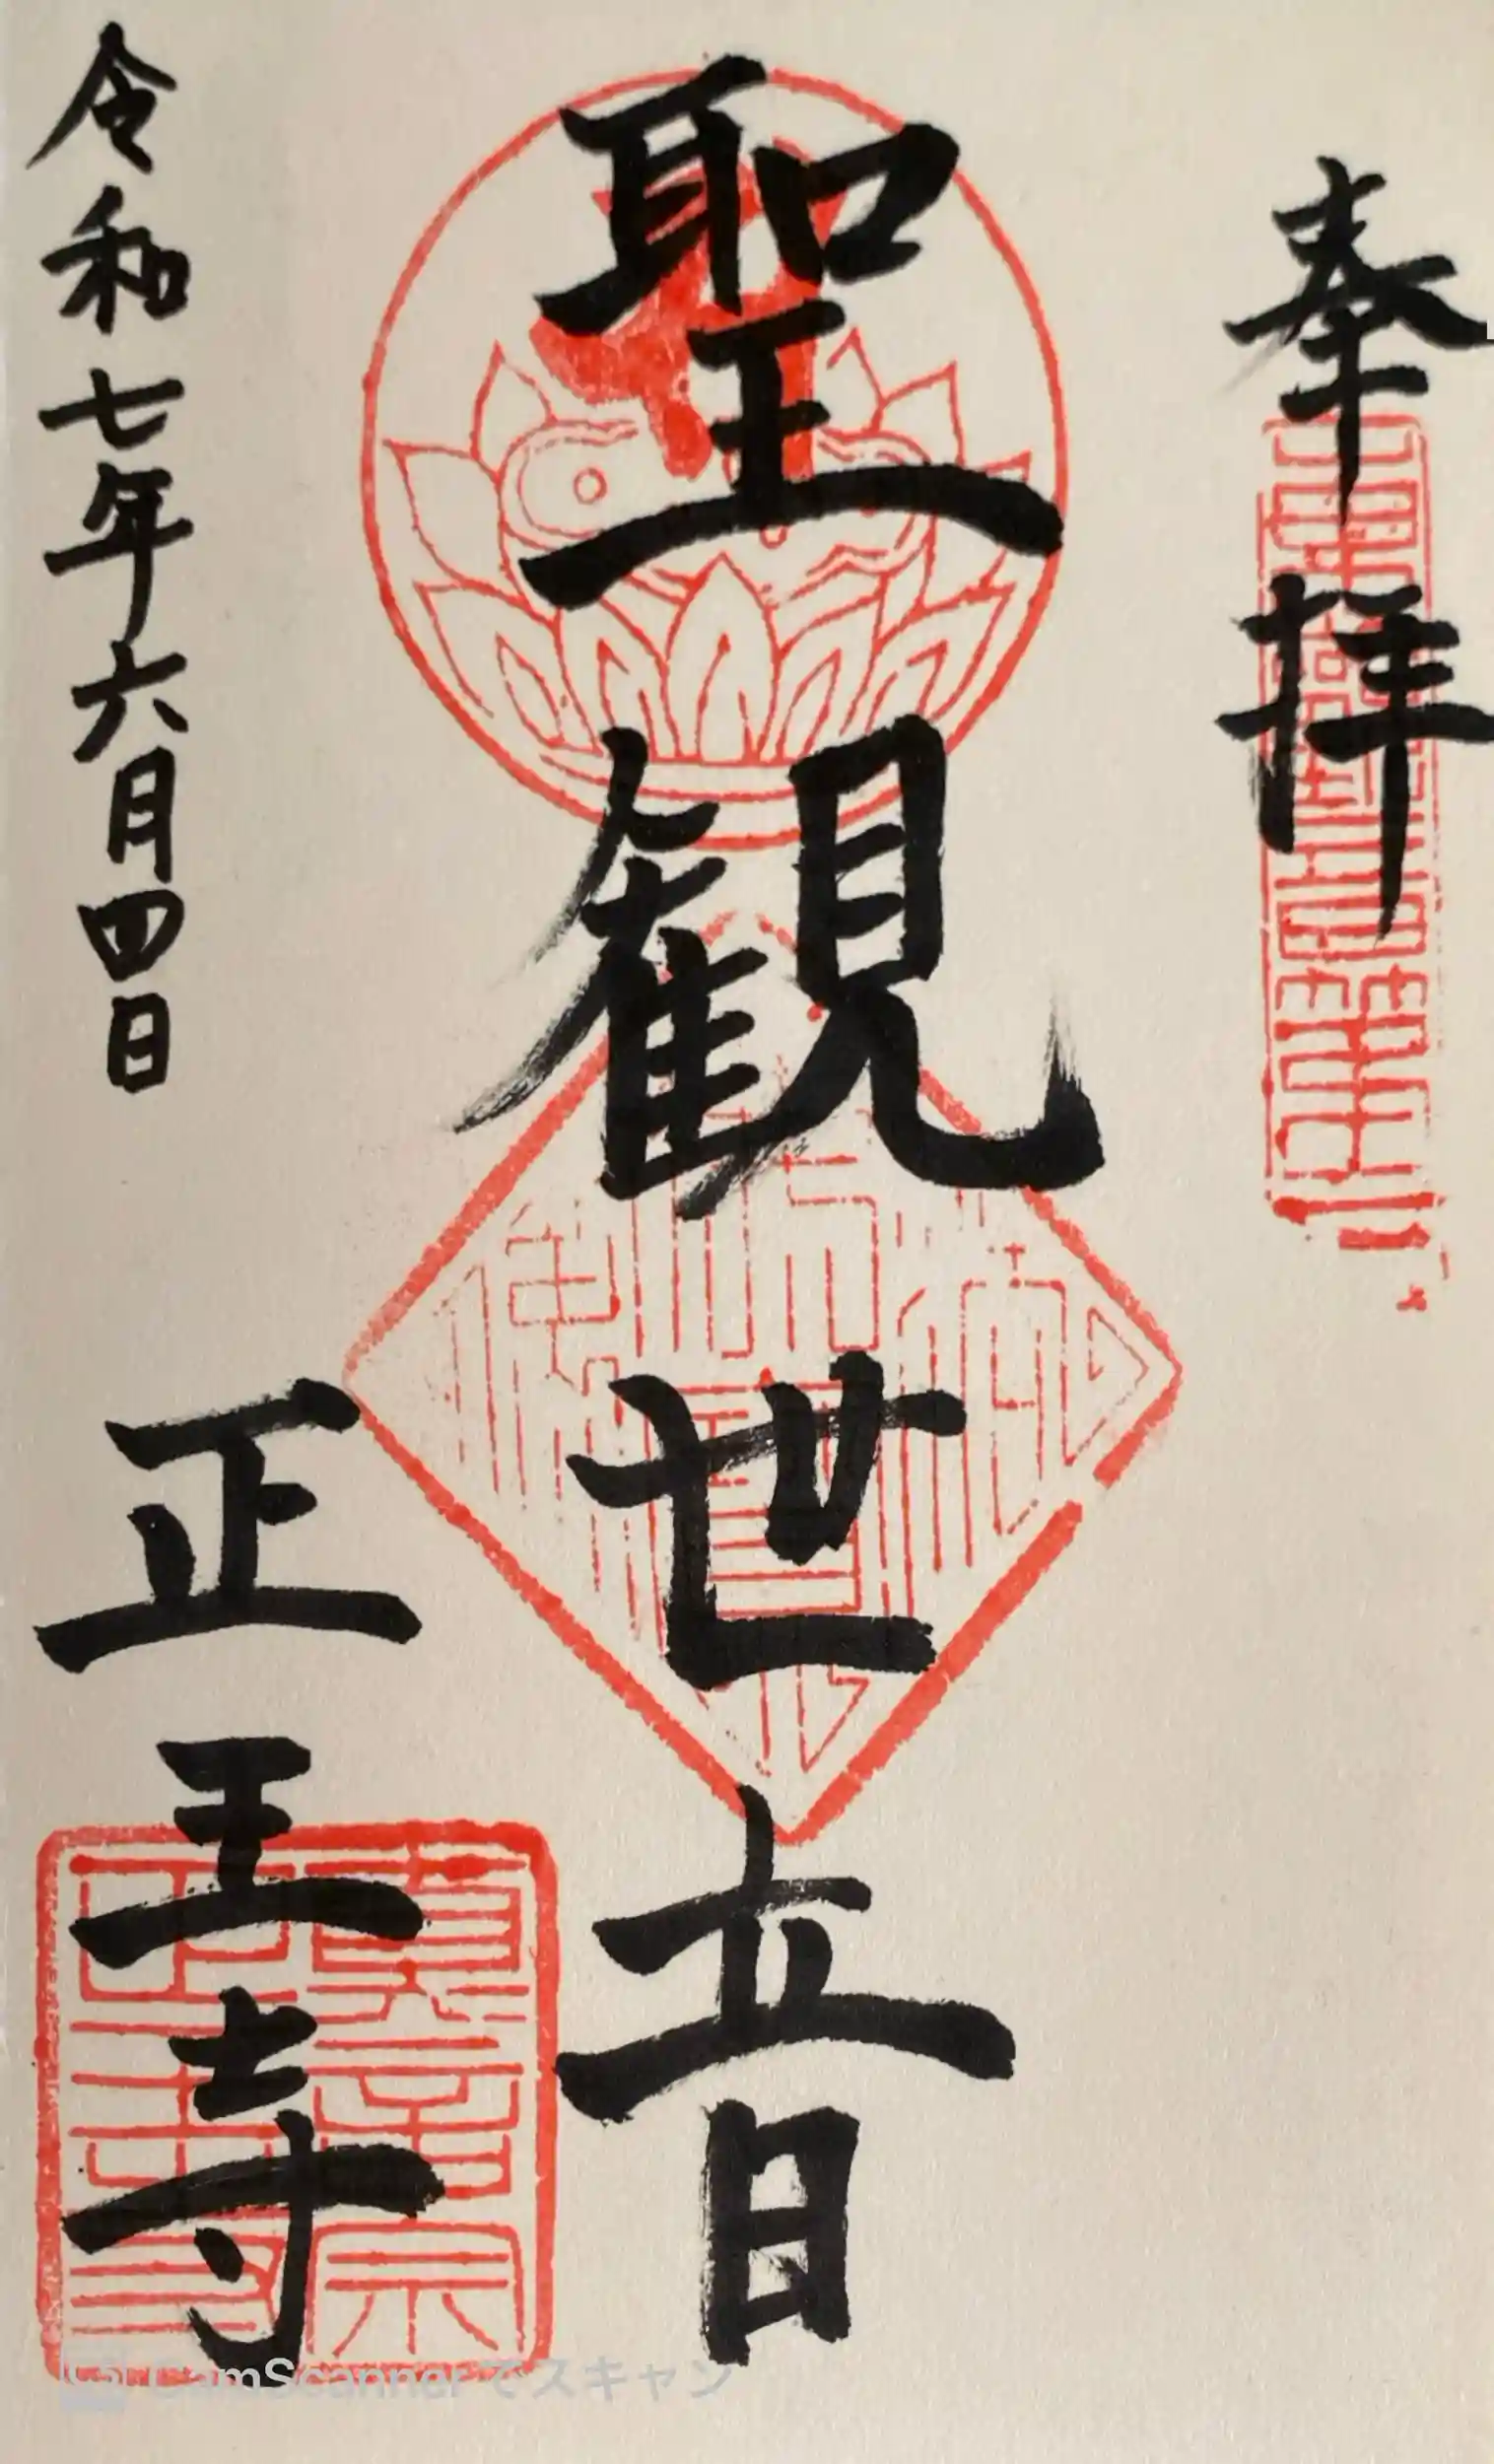 奉拝
聖観世音
令和七年六月四日
正王寺
真言宗
正王寺
CamScannerでスキャン